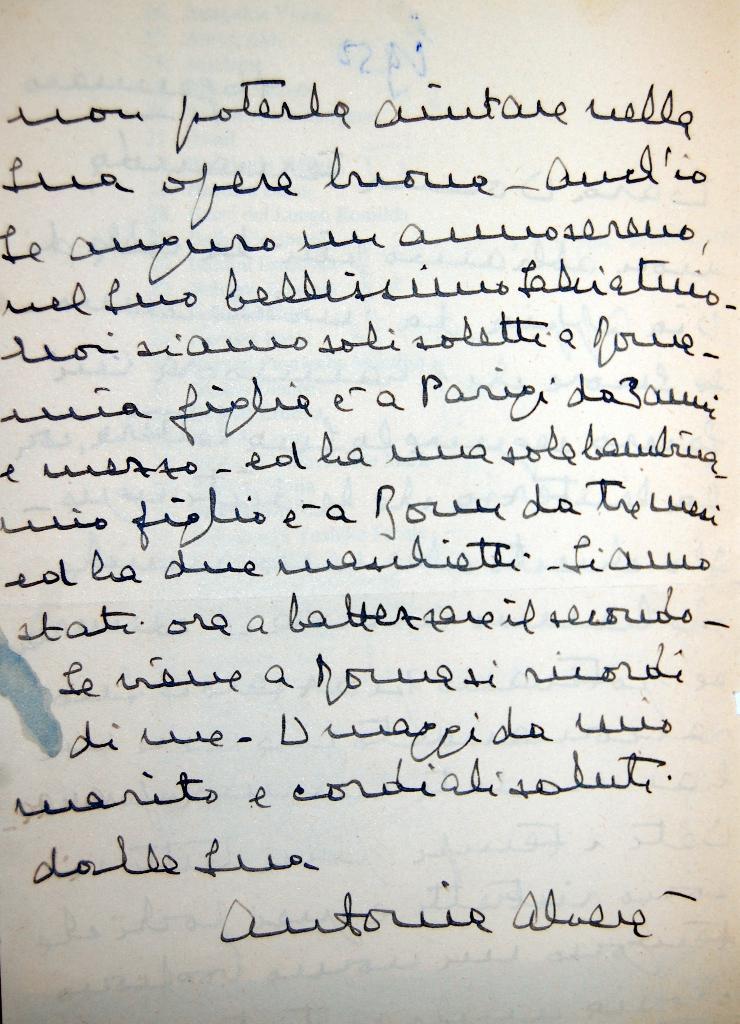 non poterla aiutare nella
Sua opera buona - Anch'io
Le auguro un anno sereno,
nel Suo bellissimo Salviatino -
noi siamo soli soletti a Roma -
mia figlia è a Parigi da 3 anni
e mezzo - ed ha una sola bambina -
mio figlio è a Roma da tre mesi
ed ha due maschietti - Siamo
stati ora a battezzare il secondo -
Se viene a Roma si ricordi
di me - Omaggi da mio
marito e cordiali saluti
dalla Sua
Antonia